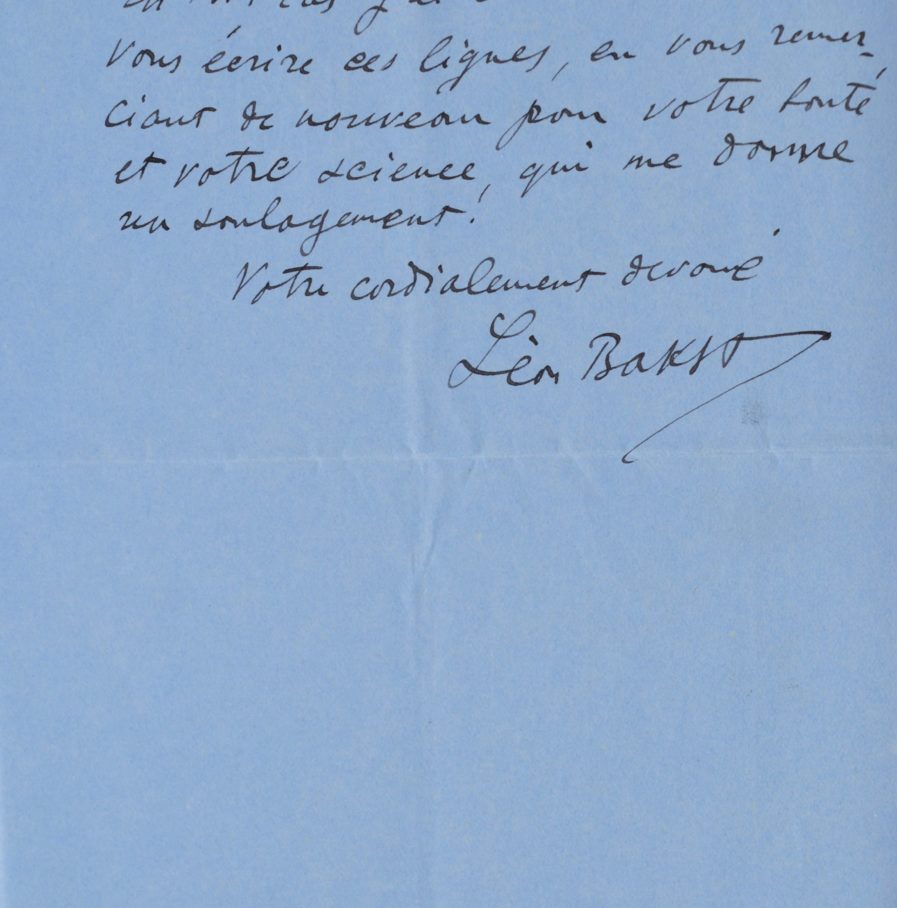 vous écrire ces lignes, en vous remer-
ciant de nouveau pour votre bonté
et votre science, qui me donne
un soulagement!
Votre cordialement dévoué
Léon Bakst